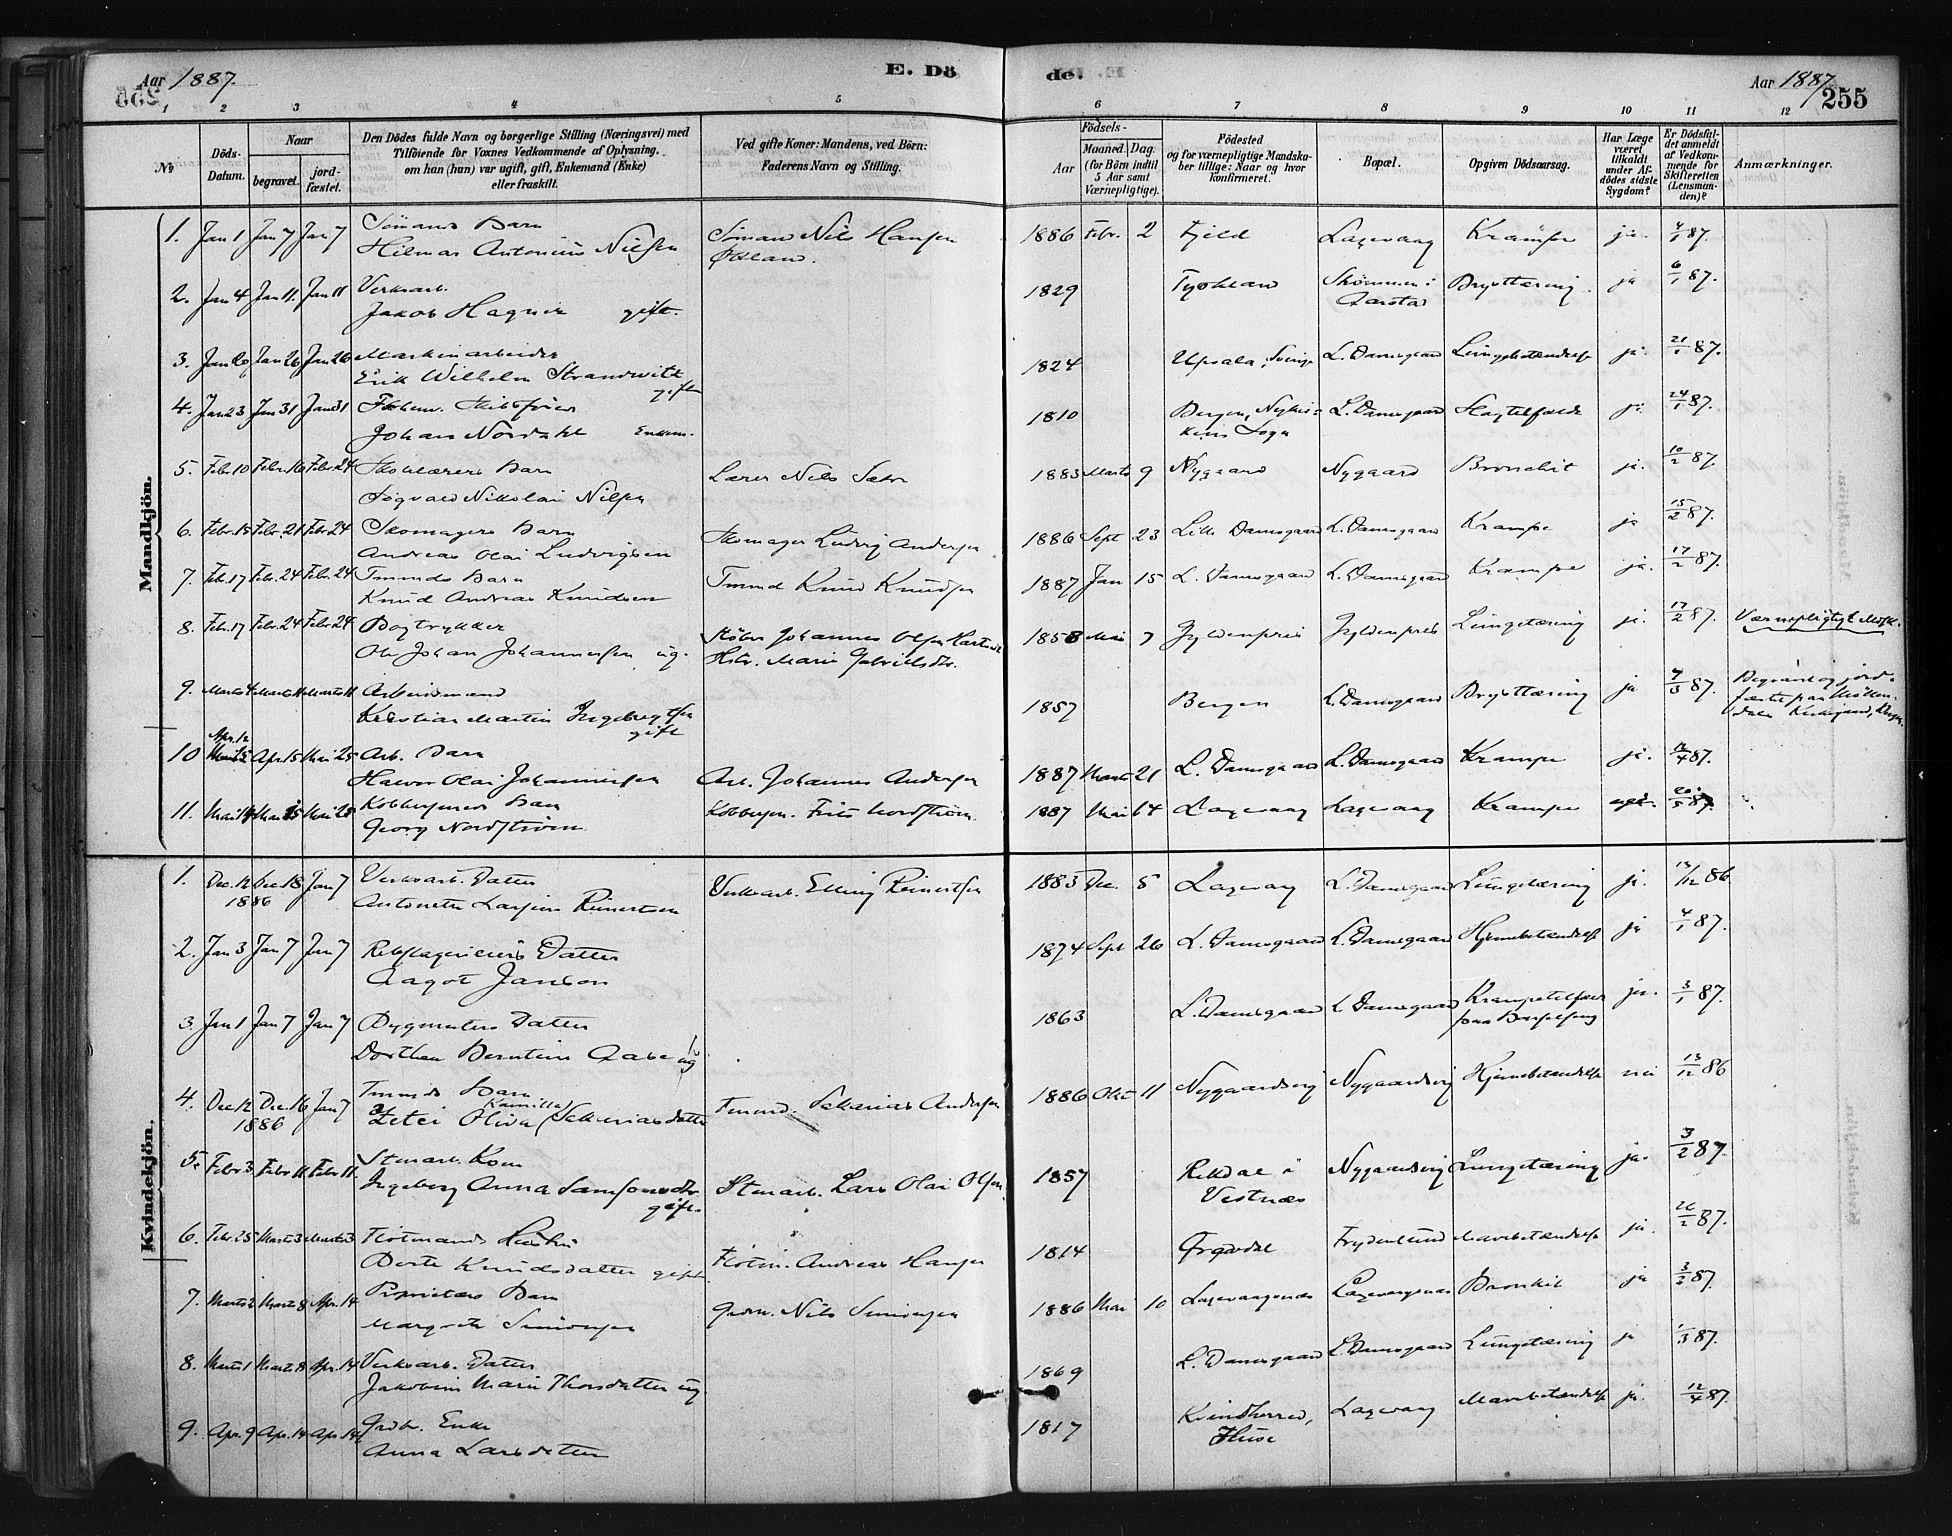 Aar 1887.
E. Dö
de.
Aar 1887.
255
1 2 3 4 5 6 7 8 9 10 11 12
№
Döds-Datum.
Naar
begravet.
jord-fæstet.
Den Dödes fulde Navn og borgerlige Stilling (Næringsvei) med
Tilföiende for Voxnes Vedkommende af Oplysning,
om han (hun) var ugift, gift, Enkemand (Enke)
eller fraskilt.
Ved gifte Koner: Mandens, ved Börn:
Faderens Navn og Stilling.
Födsels-
Aar
Maaned. Dag.
(for Börn indtil
5 Aar samt
Værnepligtige).
Födested
og for værnepligtige Mandska-
ber tillige: Naar og hvor
konfirmeret.
Bopæl.
Opgiven Dödsaarsag.
Har Læge
været
tilkaldt
under Af-
dödes sidste
Sygdom?
Er Dödsfal-
det anmeldt
af Vedkom-
mende for
Skifteretten
(Lensman-
den)?
Anmærkninger.
Mandkjön.
1. Jan 1 Jan 7 Jan 7 Sömands Barn Sömand Nils Hansen 1886 Febr. 2 Fjeld Laxevaag Krampe ja. 4/1 87.
Hilmar Antonius Nilsen Östland.
2. Jan 4 Jan 11. Jan 11 Verksarb. 1829 Brysttæring. ja 6/1 87.
Jakob Hagnik gift.
3. Jan 20 Jan 26 Jan 26 Maskinarbeider 1824 Upsala, Sverige L. Damsgaard Lungebetændelse ja. 21/1 87.
Erik Wilhelm Strandwitz
gift
4. Jan 23 Jan 31 Jan 31 1810 Bergen, Nykir- L. Damsgaard ja. 24/1 87.
Johan Nordahl Enkem. kens Sogn
5. Febr. 10 Febr. 16 Febr. 24 Skolelærers Barn Lærer Nils Sæbö 1883 Marts 9 Nygaard Nygaard Bronchit ja. 10/2 87.
Nikolai Nilsen
6. Febr. 15 Febr. 21 Febr. 24 Skomagers Barn Skomager Ludvig Andersen 1886 Sept 23 Lille Damsgaard L. Damsgaard Krampe ja 15/2 87.
Andreas Olai Ludvigsen
7. Feb. 17 Feb. 24 Feb. 24 Tmmds Barn Tmmd Knud Knudsen 1887 Jan 15 L. Damsgaard L. Damsgaard Krampe ja. 17/2 87.
Knud Andreas Knudsen
8. Febr. 17 Febr. 24 Febr. 24 Bogtrykker Johannes Olsen 1858 Mai 7 Gyldenpris Gyldenpris Lungetæring ja. 17/2 87. Værnepligtigt Mdsk.
Ole Johan Johannessen ug. Hstr. Marie Gabrielsdtr.
9. Marts 4 Marts 11 Marts 11 Arbeidsmand 1857 Bergen L. Damsgaard Brysttæring ja 7/3 87. Begravet og jord-
Kristian Martin Ingebregtsen fæstet paa Möllen-
gift dals Kirkegaard, Bergen
10 Apr. 12 Apr. 15 Mai 25 Arb. Barn Arb. Johannes Andersen 1887 Marts 21 L. Damsgaard L. Damsgaard Krampe ja. 12/4 87.
Halvor Olai Johannessen
11. Mai 14 Mai 15 Mai 28 Kobbersmeds Barn Kobbersm. Frits Nordström 1887 Mai 14 Laxevaag Laxevaag Krampe 20/5 87.
Georg Nordström
Kvindekjön.
1. Dec. 12 Dec. 18 Jan 7 Verksarb. Datter Verksarb. Elling Reinertsen 1883 Dec. 5 Laxevaag L. Damsgaard Lungetæring ja. 13/12 86
1886 Antonette Larsine Reinertsen
2. Jan 3 Jan 7 Jan 7 Datter 1874 Sept 26 L. Damsgaard L. Damsgaard Hjernebetændelse ja 4/1 87.
Aagot Janson
3. Jan 1 Jan 7 Jan 7 Bygmesters Datter 1863 L. Damsgaard L. Damsgaard Krampetilfæld ja. 3/1 87.
Dorthea Berntine Aabe ug paa Barselseng
4. Dec 12 Dec. 16 Jan 7 Tmmds Barn Tmmd. Sakarias Andersen 1886 Okt 11 Nygaardsvig Nygaardsvig Hjernebetændelse nei 13/12 86
1886 Oliva Kamilla Sakariasdatter
5. Febr 3 Febr 11 Febr 11. Stenarb. Kone Stenarb. Lars Olai Olsen 1857 Rekdal i Nygaardsvig Lungetæring ja. 3/2 87.
Ingeborg Anna Samsonsdtr. Vestnæs
gift.
6. Febr. 25 Marts 3 Marts 3 Flötmands Hustru Flötm. Andreas Hansen 1814 Frydenlund Mavebetændelse ja. 26/2 87.
Berte Knudsdatter gift
7. Marts 2 Marts 8 Apr. 14 Proprietærs Barn Grdm. Nils Simonsen 1886 Mai 10 Laxevaagsnæs Laxevaagsnæs Bronkit ja 3/3 87.
Margrete Simonsen
8. Marts 1 Marts 8 Apr. 14 Verksarb. Datter 1869 L. Damsgaard L. Damsgaard Lungetæring ja 1/3 87.
Jakobine Marie Thorsdatter ug
9. Apr. 9 Apr. 14 Apr. 14 Grdbr. Enke 1817 Kvindherred, Laxevaag Mavebetændelse ja. 12/4 87.
Anna Larsdatter Huse